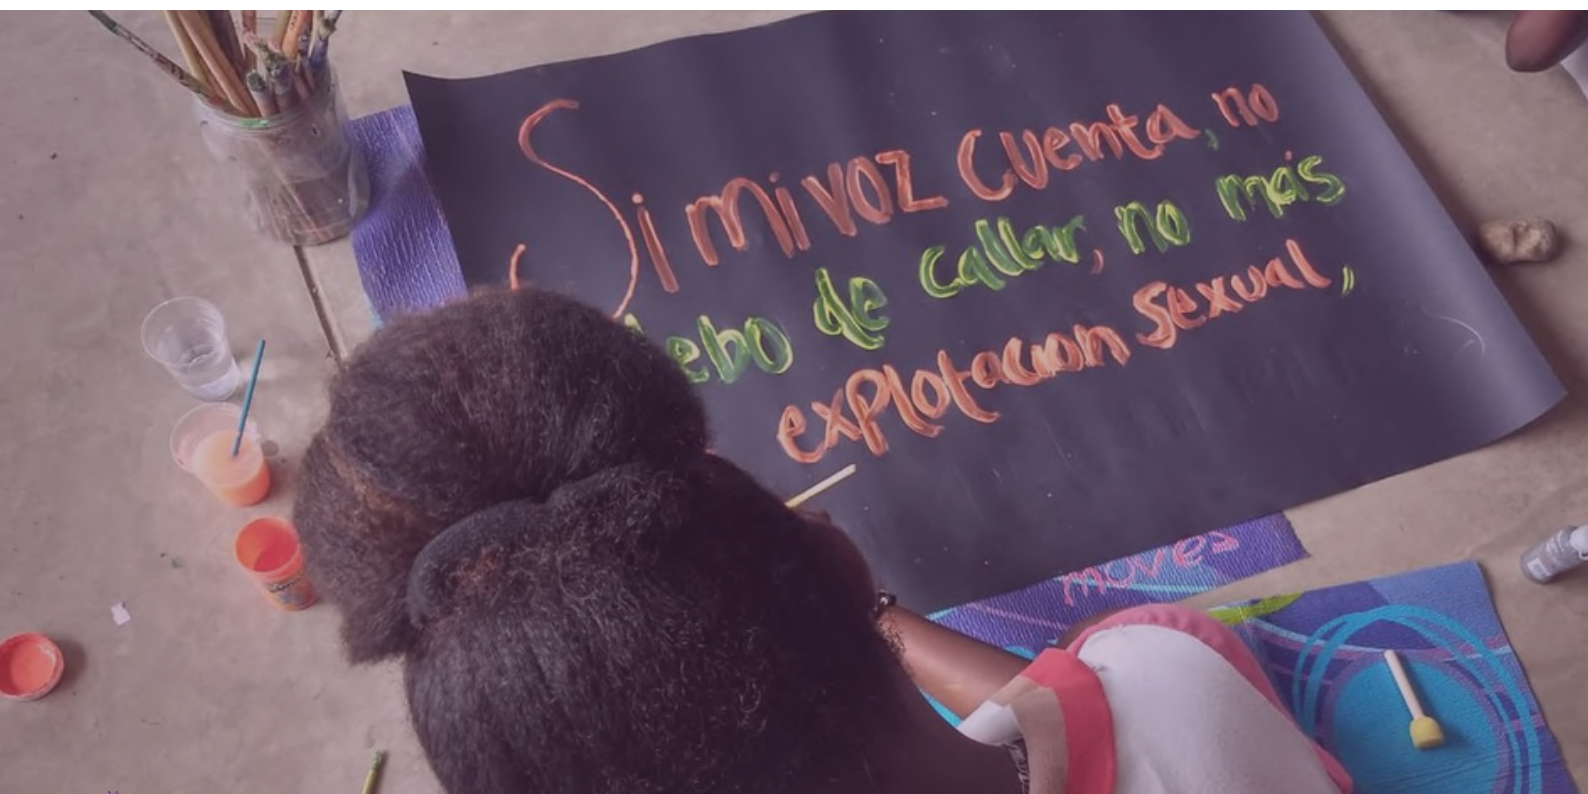 Si mi voz cuenta, no
debo de callar, no más
explotacion sexual,
moves